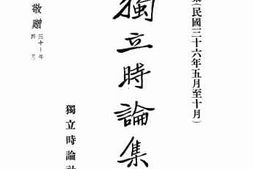 民國三十六年五月至十月）
獨立時論集
獨立時論社
敬贈